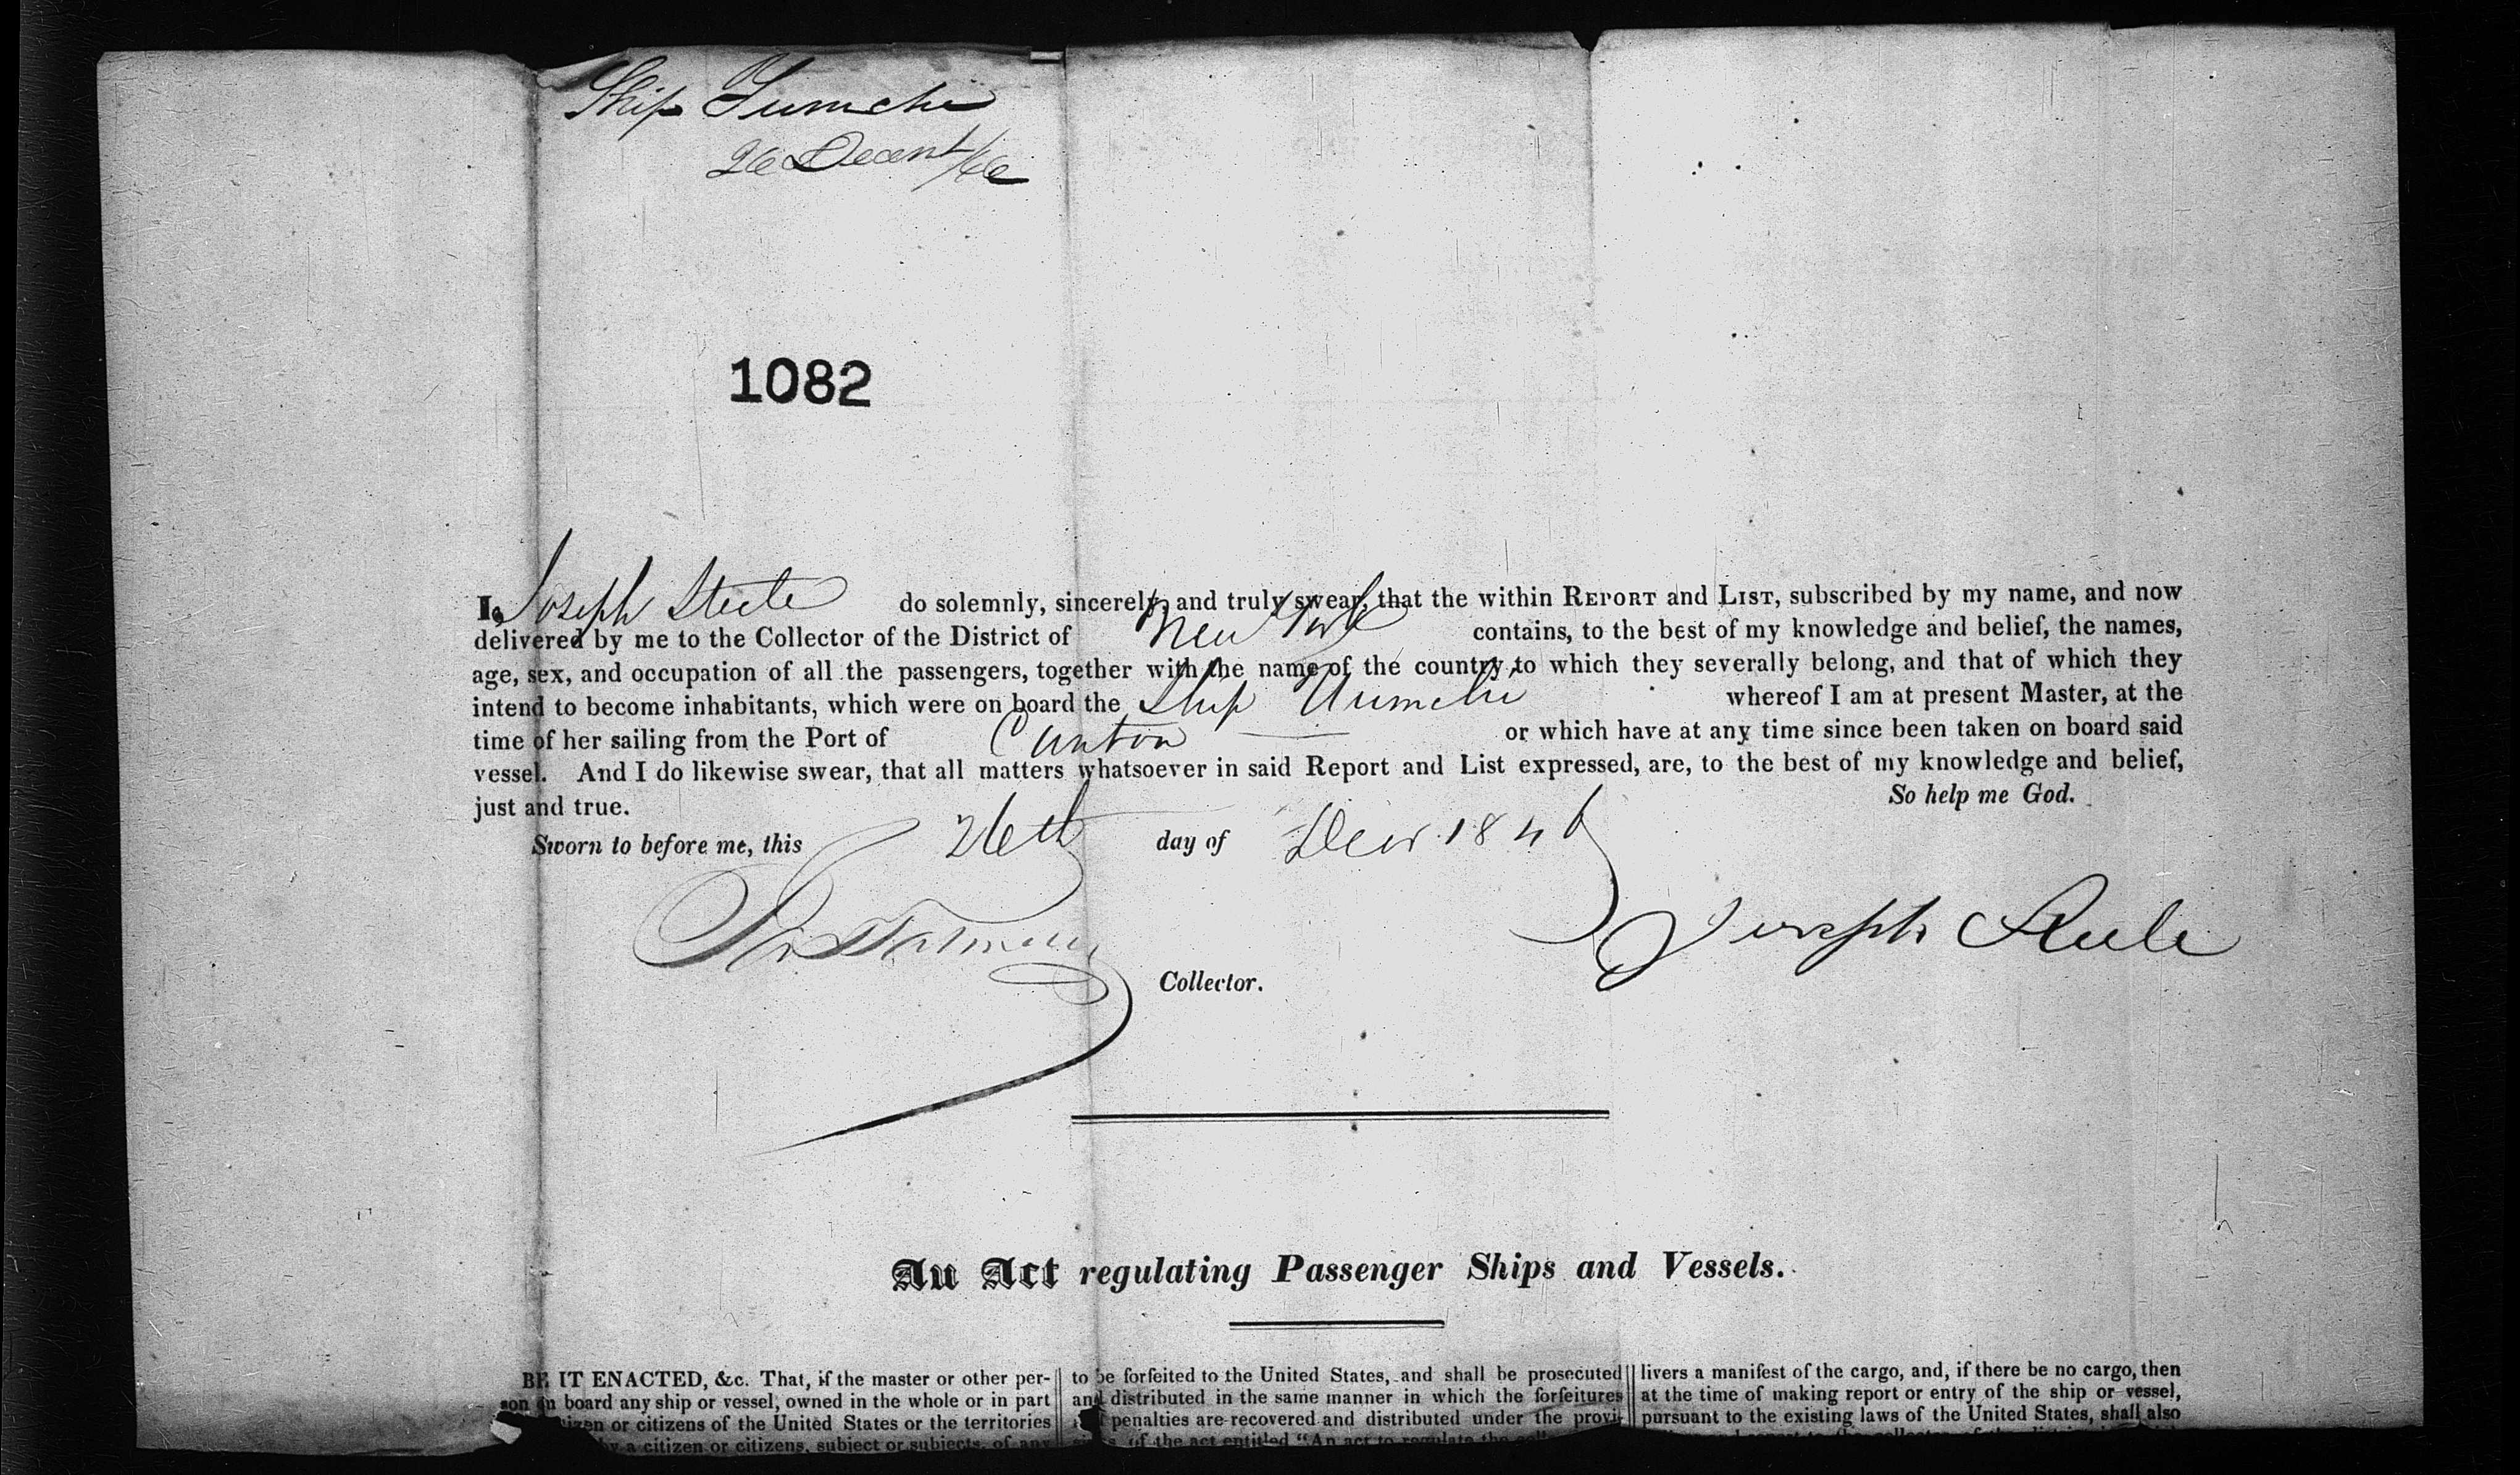 Ship Yumchi
26 Decemr /46
1082
I, Joseph Steele do solemnly, sincerely, and truly swear, that the within REPORT and LIST, subscribed by my name, and now
delivered by me to the Collector of the District of New York contains, to the best of my knowledge and belief, the names,
age, sex, and occupation of all the passengers, together with the name of the country to which they severally belong, and that of which they
intend to become inhabitants, which were on board the Ship whereof I am at present Master, at the
time of her sailing from the Port of Canton or which have at any time since been taken on board said
vessel. And I do likewise swear, that all matters whatsoever in said Report and List expressed, are, to the best of my knowledge and belief,
just and true. So help me God.
Sworn to before me, this 26th day of Decr 1846
Joseph Steele
Collector.
An Act regulating Passenger Ships and Vessels.
BE IT ENACTED, &c. That, if the master or other per-
son on board any ship or vessel, owned in the whole or in part
citizen or citizens of the United States or the territories
by a citizen or citizens, subject or subjects, of any
to be forfeited to the United States, and shall be prosecuted
and distributed in the same manner in which the forfeitures
penalties are recovered and distributed under the provi-
of the act entitled "An act to regulate the
livers a manifest of the cargo, and, if there be no cargo, then
at the time of making report or entry of the ship or vessel,
pursuant to the existing laws of the United States, shall also